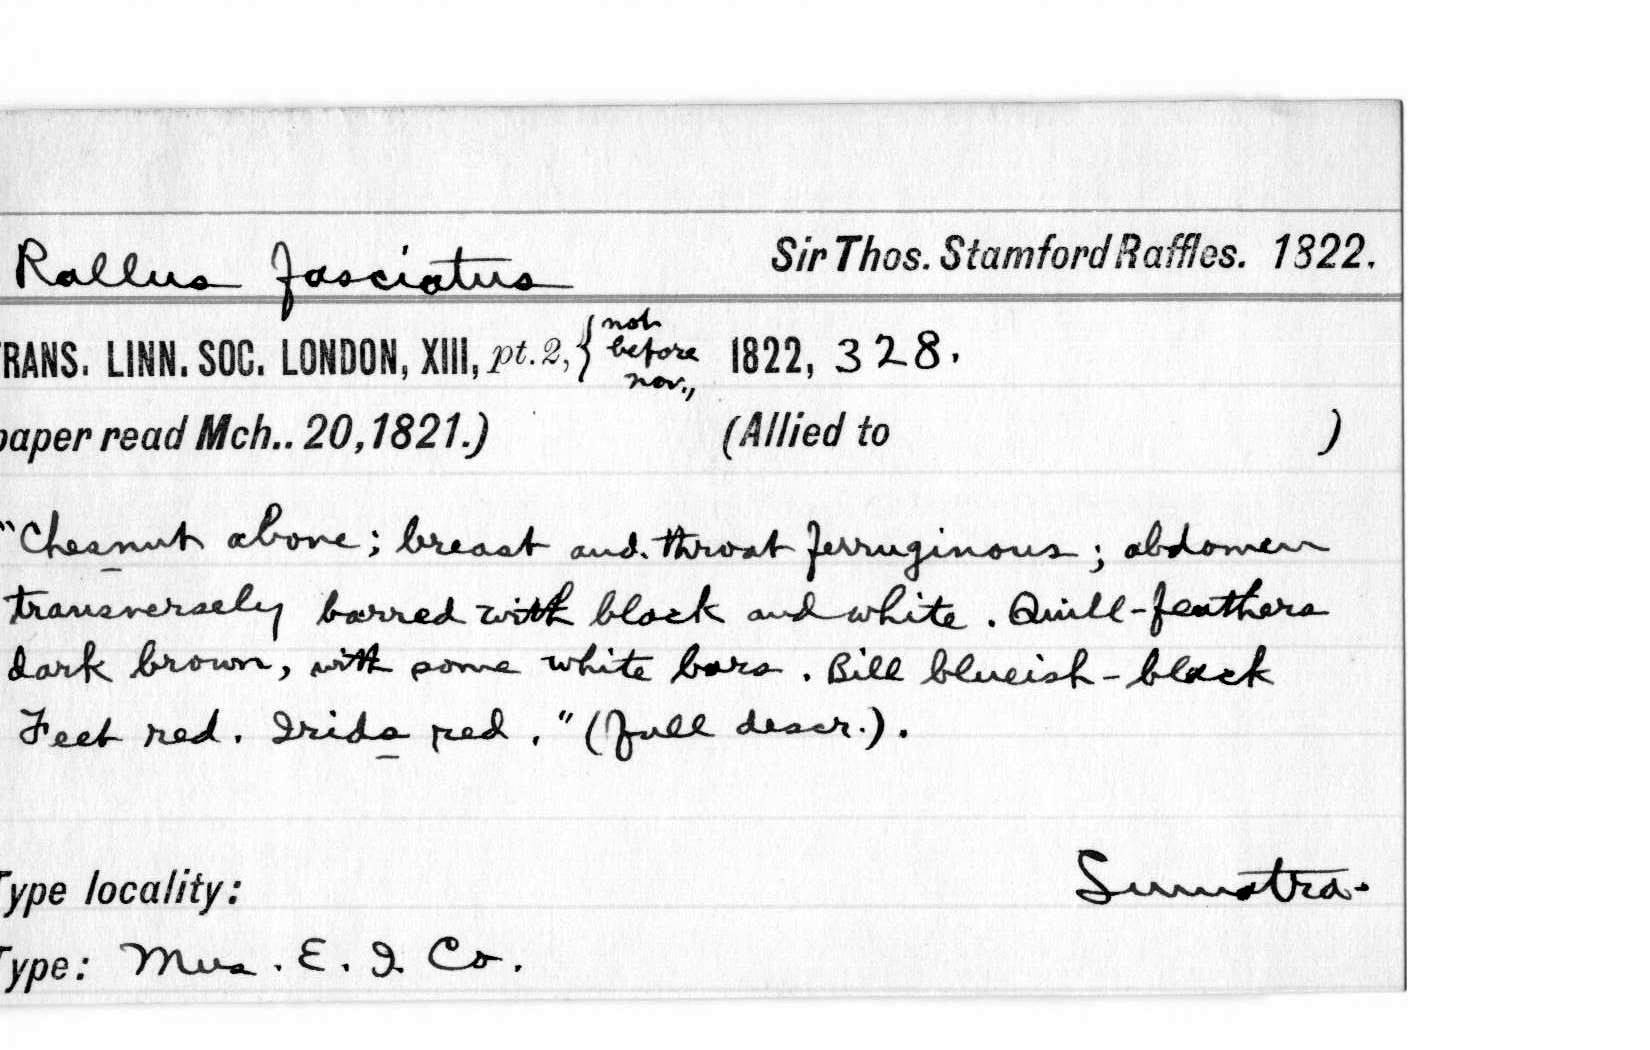 Rallus fasciatus Sir Thos. Stamford Raffles. 1822.
TRANS. LINN. SOC. LONDON, XIII, pt. 2, { not before nov., 1822, 328.
paper read Mch.. 20, 1821.) (Allied to )
"Chesnut above; breast and throat ferruginous; abdomen
transversely barred with black and white. Quill-feathers
dark brown, with some white bars. Bill blueish-black
Feet red. Irids red." (full descr.).
Type locality: Sumatra.
Type: Mus. E. I. Co.